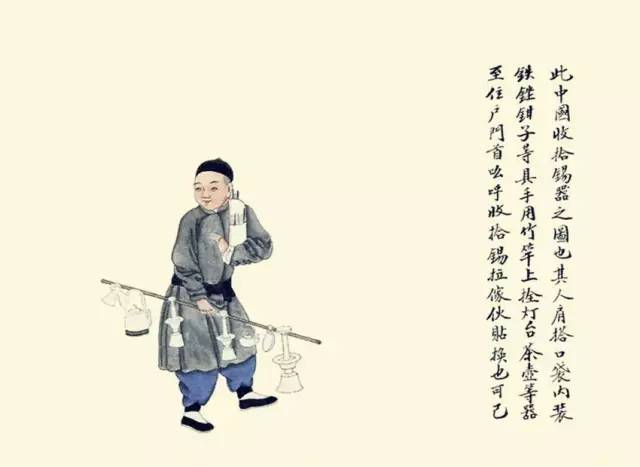 此中國收拾錫器之圖也其人肩搭口袋内装
鉄銼鉗子等具手用竹竿上拴灯台茶壺等器
至住户門首吆呼收拾錫拉傢伙貼換也可已